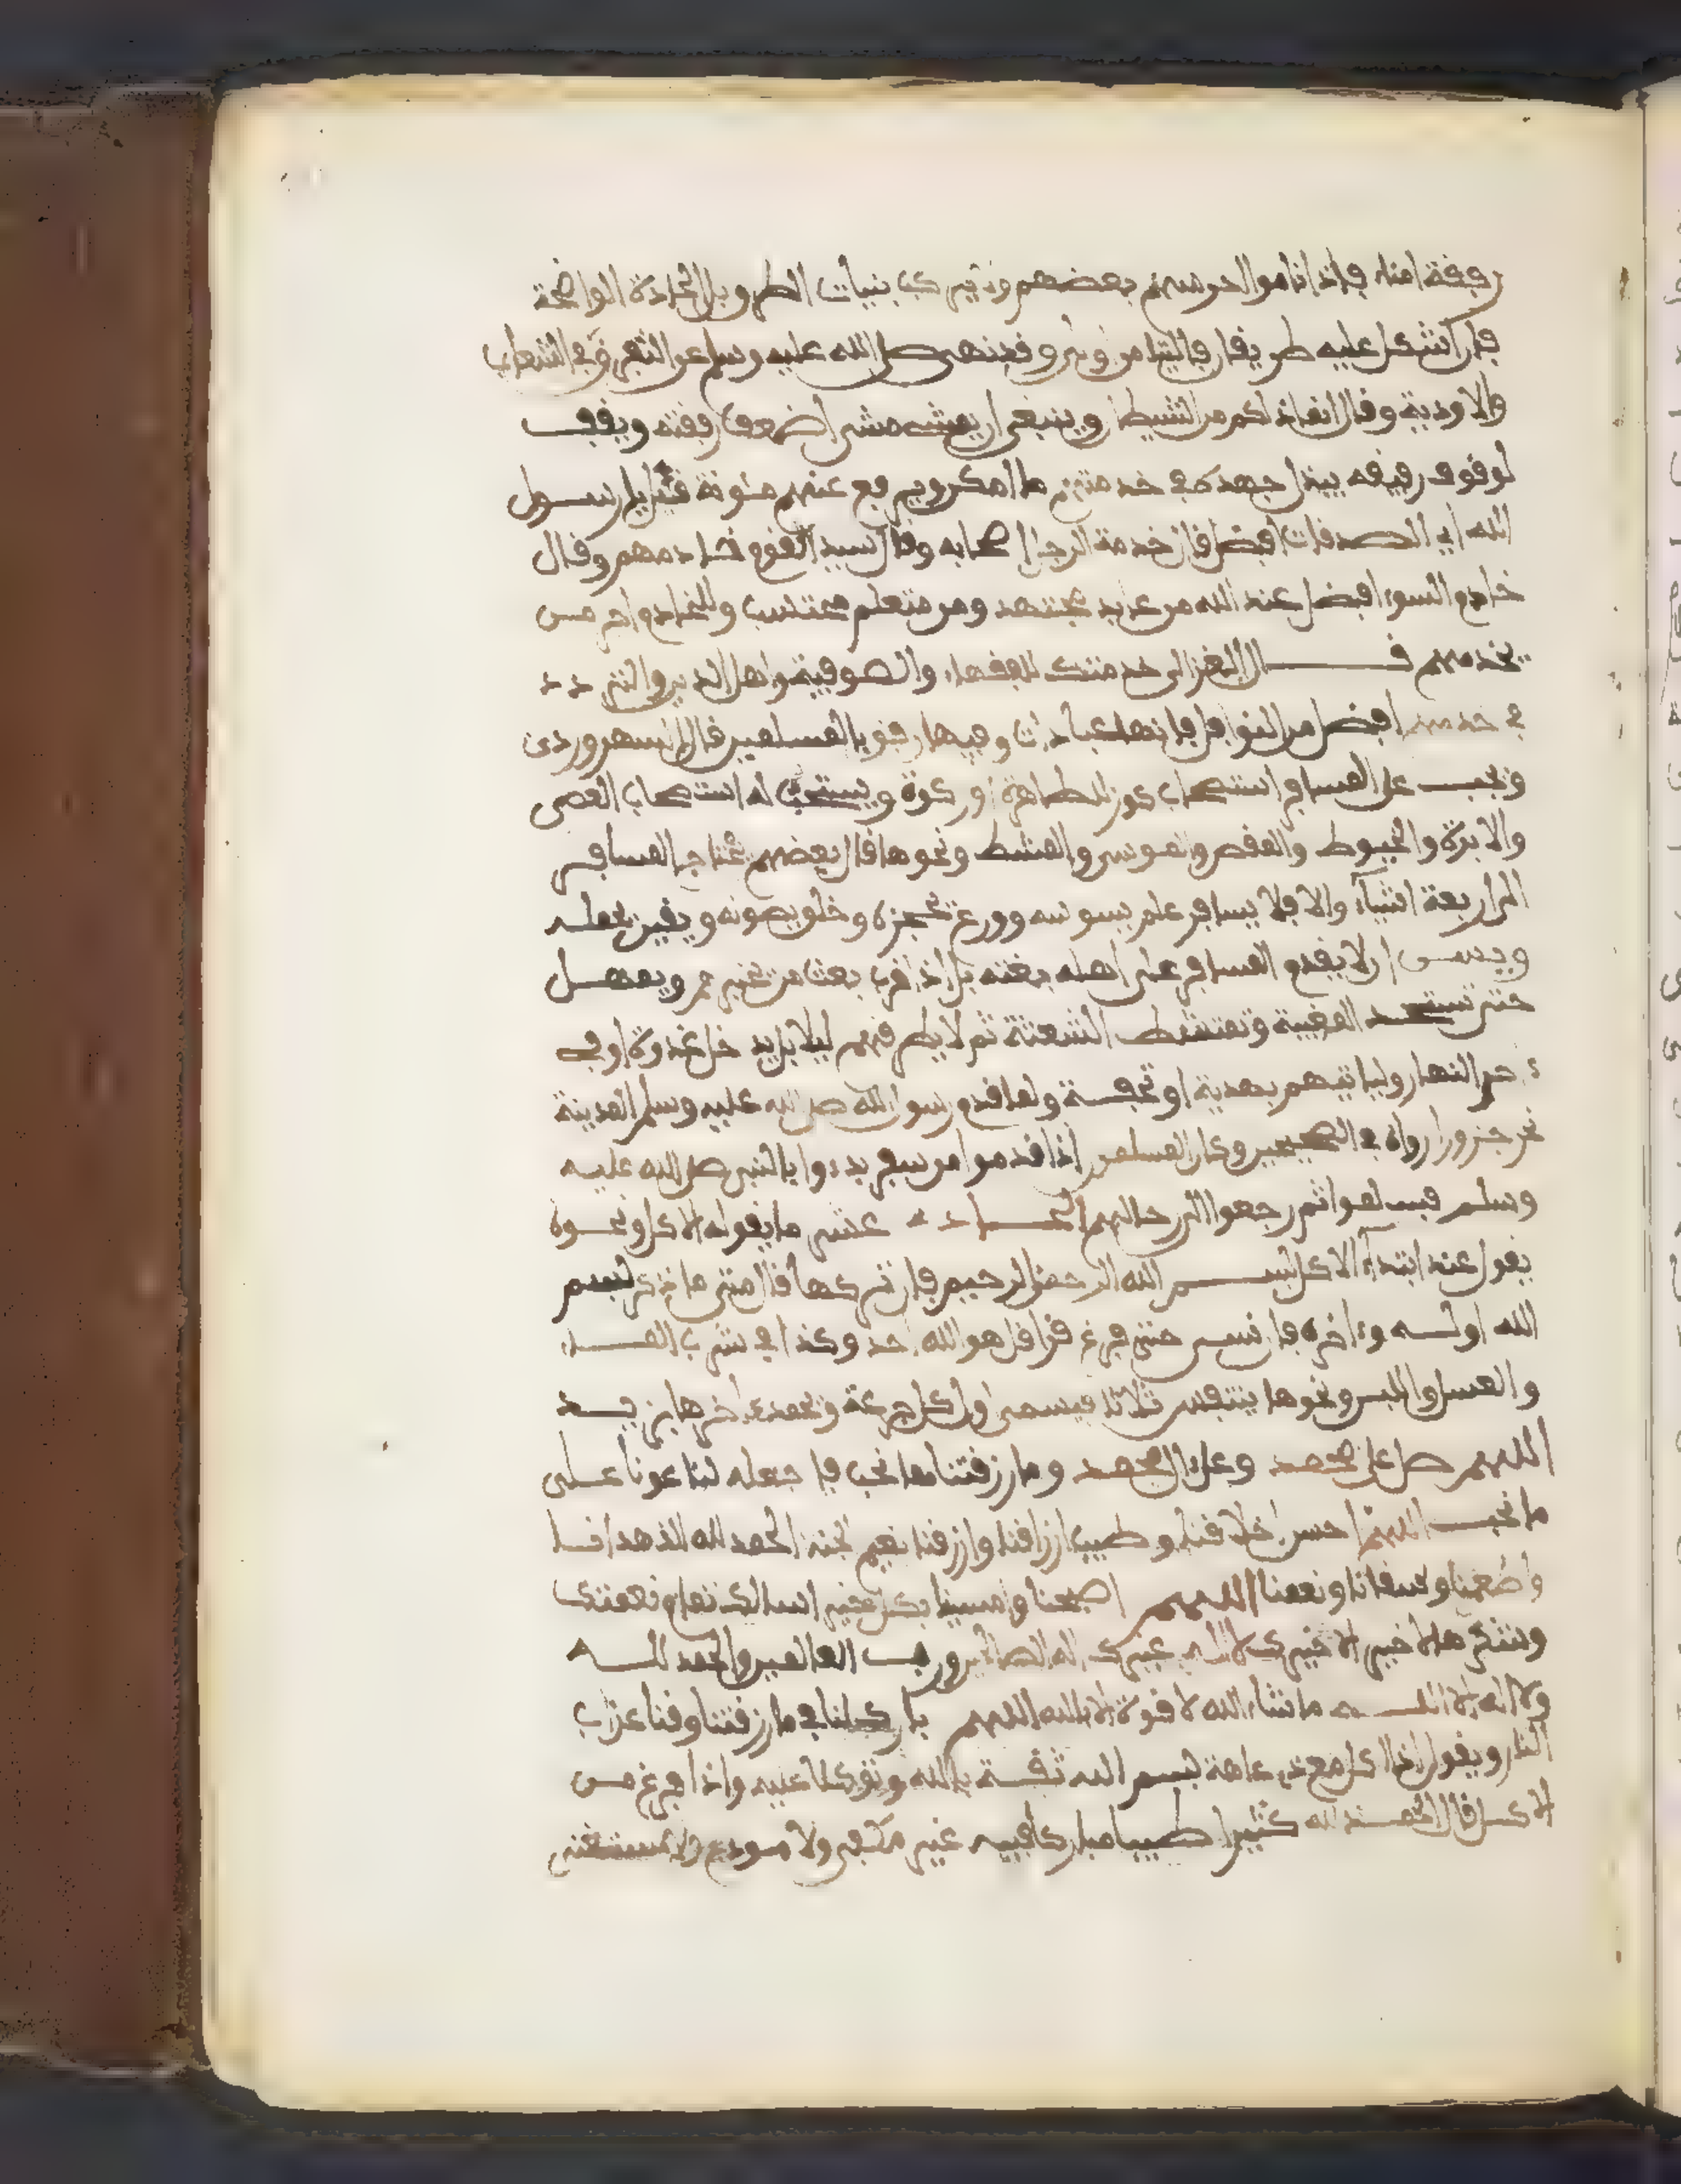 رفقة امناء فاذا ناموا احرسهم بعضهم ويترك بنيات الطرو بل الجادة الواضحة
فان اشكل عليه طريقان فالتيامن وقد نهى صلى الله عليه وسلم عن التفرق في الشعاب
والاودية وقال انما ذلكم من الشيطان وينبغي ان يمشي مشي اضعف رفقته ويقف
لوقوف رفيقه يبذل جهده في خدمتهم ما امكن ويرفع عنهم مئونة قيل يا رسول
الله اي الصدقات افضل قال خدمة الرجل اصحابه وقال سيد القوم خادمهم وقال
خادم السوء افضل عند الله من عابد مجتهد ومن متعلم محتسب وللخادم اجر من
يخدمهم قال الغزالي خدمتك للفقهاء والصوفية واهل الدين والتردد
في خدمتهم افضل من النوافل فانها عبادات وفيها رفق بالمسلمين قال السهروردي
ويجب على المسافر استصحاب كوز للطهارة او ركوة ويستحب له استصحاب العصى
والابرة والخيوط والمقص والموس والمشط ونحوها قال بعضهم يحتاج المسافر
الى اربعة اشياء والا فلا يسافر علم يسوسه وورع يحجزه وخلق يصونه ويقين يحمله
ويس ان لا يقدم المسافر على اهله بغته بل اذا قرب بعث من يخبرهم ويمهل
حتى تستحد المغيبة وتمتشط الشعثة ثم لا يطرقهم ليلا بل يدخل غدوة او في
ءاخر النهار ولياتيهم بهدية او تحفة ولما قدم رسول الله صلى الله عليه وسلم المدينة
نحر جزورا رواه في الصحيحين وكان المسلمون اذا قدموا من سفر بدءوا بالنبي صلى الله عليه
وسلم فسلموا ثم رجعوا الى رحالهم الحادي عشر ما يقوله الاكل ونحوه
يقول عند ابتداء الاكل بسم الله الرحمن الرحيم فان تركها قال متى ما ذكر بسم
الله اوله وءاخره فان نسي حتى فرغ قرا قل هو الله احد وكذا في شرب الماء
والعسل واللبن ونحوها يتنفس ثلاثا فيسمي اول كل جرعة ويحمد ءاخرها يزيد
اللهم صل على محمد وعلى ال محمد وما رزقتنا مما نحب فاجعله لنا عونا على
ما تحب اللهم احسن اخلاقنا وطيب ارزاقنا وارزقنا نعيم الجنة الحمد لله الذي هدانا
واطعمنا وسقانا ونعمنا اللهم اصبحنا وامسينا بكل خير اسالك تمام نعمتك
وشكرها لا خير الا خيرك لا اله غيرك اله الصالحين ورب العالمين والحمد لله
ولا اله الا الله ما شاء الله لا قوة الا بالله اللهم بارك لنا في ما رزقتنا وقنا عذاب
النار ويقول اذا اكل مع ذي عاهة بسم الله ثقة بالله وتوكلا عليه واذا فرغ من
الاكل قال الحمد لله كثيرا طيبا مباركا فيه غير مكفي ولا مودع ولا مستغنى